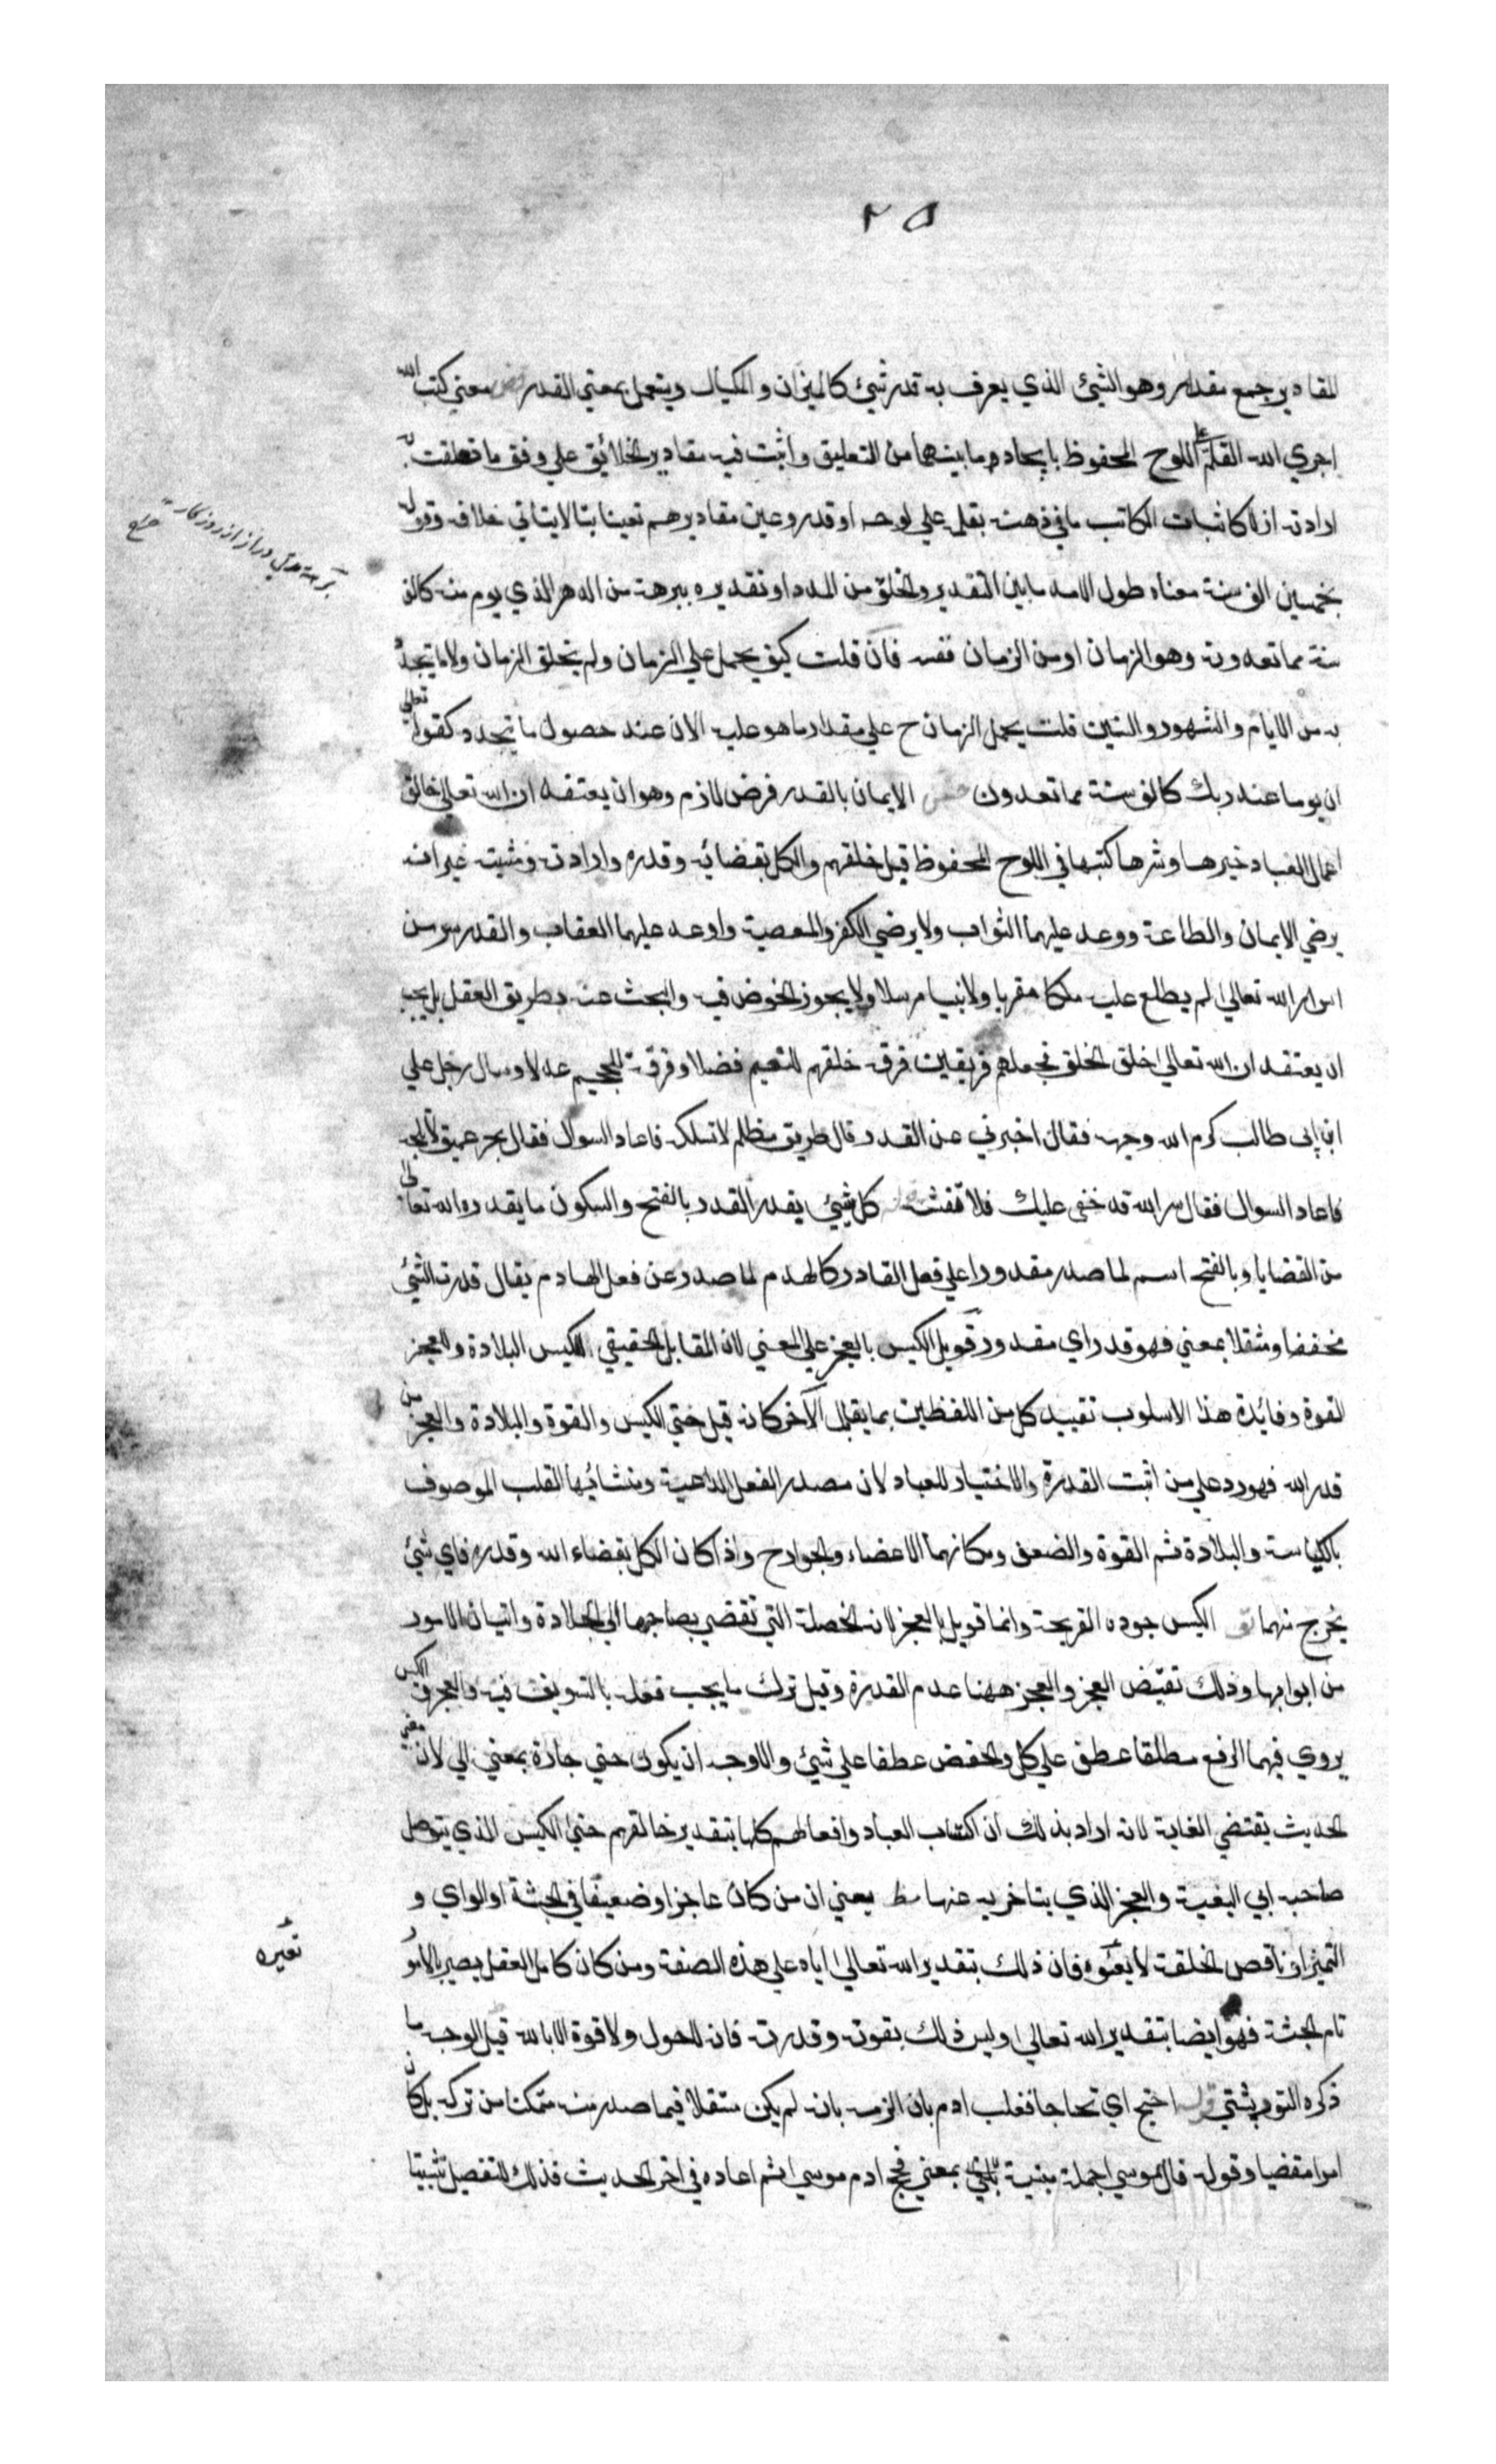 ٢٥
المقادير جمع مقدار وهو الشيئ الذي يعرف به قدر شيئ كالميزان والمكيال ويستعمل بمعني القدر معني كتب الله
اجري الله القلم علي اللوح المحفوظ بايجاد ما بينهما من التعليق واثبت فيه مقادير الخلائق علي وفق ما تعلقت به
ارادته ازلا كاثبات الكاتب ما في ذهنه بقلمه علي لوحه او قدر وعين مقاديرهم تعيينا بتا لا يتاتي خلافه وقوله
بخمسين الف سنة معناه طول الامد ما بين التقدير والخلق من المدد او تقديره ببرهة من الدهر الذي يوم منه كالف
سنة مما تعدون وهو الزمان او من الزمان نفسه فان قلت كيف يحمل علي الزمان ولم يخلق الزمان ولا ما يتحدد
به من الايام والشهور والسنين قلت يحمل الزمان ح علي مقدار ما هو عليه الان عند حصول ما يتحدد كقوله تعالي
ان يوما عند ربك كالف سنة مما تعدون الايمان بالقدر فرض لازم وهو ان يعتقد ان الله تعالي خالق
اعمال العباد خيرها وشرها كتبها في اللوح المحفوظ قبل خلقهم والكل بقضائه وقدره وارادته ومشيته غير انه
يرضي الايمان والطاعة ووعد عليهما الثواب ولا يرضي الكفر والمعصية واوعد عليهما العقاب والقدر سر من
اسرار الله تعالي لم يطلع عليه ملكا مقربا ولا نبيا مرسلا ولا يجوز الخوض فيه والبحث عنه بطريق العقل بل يجب
ان يعتقد ان الله تعالي خلق الخلق فجعلهم فريقين فرقة خلقهم للنعيم فضلا وفرقة للجحيم عدلا وسال رجل علي
ابن ابي طالب كرم الله وجهه فقال اخبرني عن القدر قال طريق مظلم لا تسلكه فاعاد السوال فقال بحر عميق لا تلجه
فاعاد السوال فقال سر الله قد خفي عليك فلا تفتشه كل شيئ بقدر القدر بالفتح والسكون ما يقدره الله تعالي
من القضايا وبالفتح اسم لما صدر مقدورا علي فعل القادر كالهدم لما صدر عن فعل الهادم يقال قدرت الشئ
مخففا ومثقلا بمعني فهو قدر اي مقدور قوبل الكيس بالعجز علي المعني لان المقابل الحقيقي للكيس البلادة وللعجز
القوة وفائدة هذا الاسلوب تقييد كل من اللفظين بما يقابل الآخر كانه قيل حتي الكيس والقوة والبلادة والعجز من
قدر الله فهو رد علي من اثبت القدرة والاختيار للعباد لان مصدر الفعل الداعية ومنشائها القلب الموصوف
بالكياسة والبلادة ثم القوة والضعف ومكانهما الاعضاء والجوارح واذا كان الكل بقضاء الله وقدره فاي شئ
يخرج منهما الكيس جوده القريحة وانما قوبل بالعجز لانه الخصلة التي تقضي بصاحبها الي الجلادة واتيان الامور
من ابوابها وذلك نقيض العجز والعجز ههنا عدم القدرة وقيل ترك ما يجب فعله بالتسويف فيه والعجز والكيس
يروي فيهما الرفع مطلقا عطف علي كل والخفض عطفا علي شيئ والاوجه ان يكون حتي جارة بمعني الي لان معني
الحديث يقتضي الغاية لانه اراد بذلك ان اكتساب العباد وافعالهم كلها بتقدير خالقهم حتي الكيس الذي يتوصل
صاحبه الي البغية والعجز الذي يتاخر به عنها يعني ان من كان عاجزا وضعيفا في الجثة او الراي و
التميز او ناقص الخلقة لا تعيّره فان ذلك بتقدير الله تعالي اياه علي هذه الصفة ومن كان كامل العقل بصير بالامور
تعيره
تام الجثة فهو ايضا بتقدير الله تعالي وليس ذلك بقوته وقدرته فانه لا حول ولا قوة الا بالله قيل الوجه ما
ذكره التوربشتي قوله احتج اي تحاجا فغلب ادم بان الزمه بانه لم يكن مستقلا فيما صدر منه متمكنا من تركه بل كان
امرا مقضيا وقوله قال موسي جملة مبنية بمعني فحج ادم موسي ثم اعاده في اخر الحديث فذلك للتفصيل تثبيتا